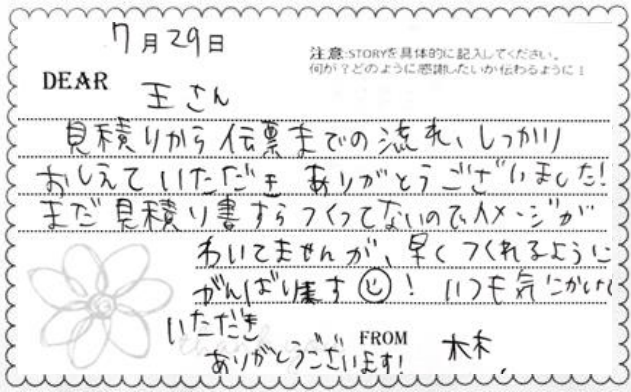 7月29日
注意:STORYを具体的に記入してください。
何が?どのように感謝したいか伝わるように!
DEAR 王さん
見積りから伝票までの流れ、しっかり
おしえていただき ありがとうございました!
まだ見積り書すらつくってないのでイメージが
わいてませんが、早くつくれるように
がんばります☺! いつも気にかけて
いただき
ありがとうございます!
FROM